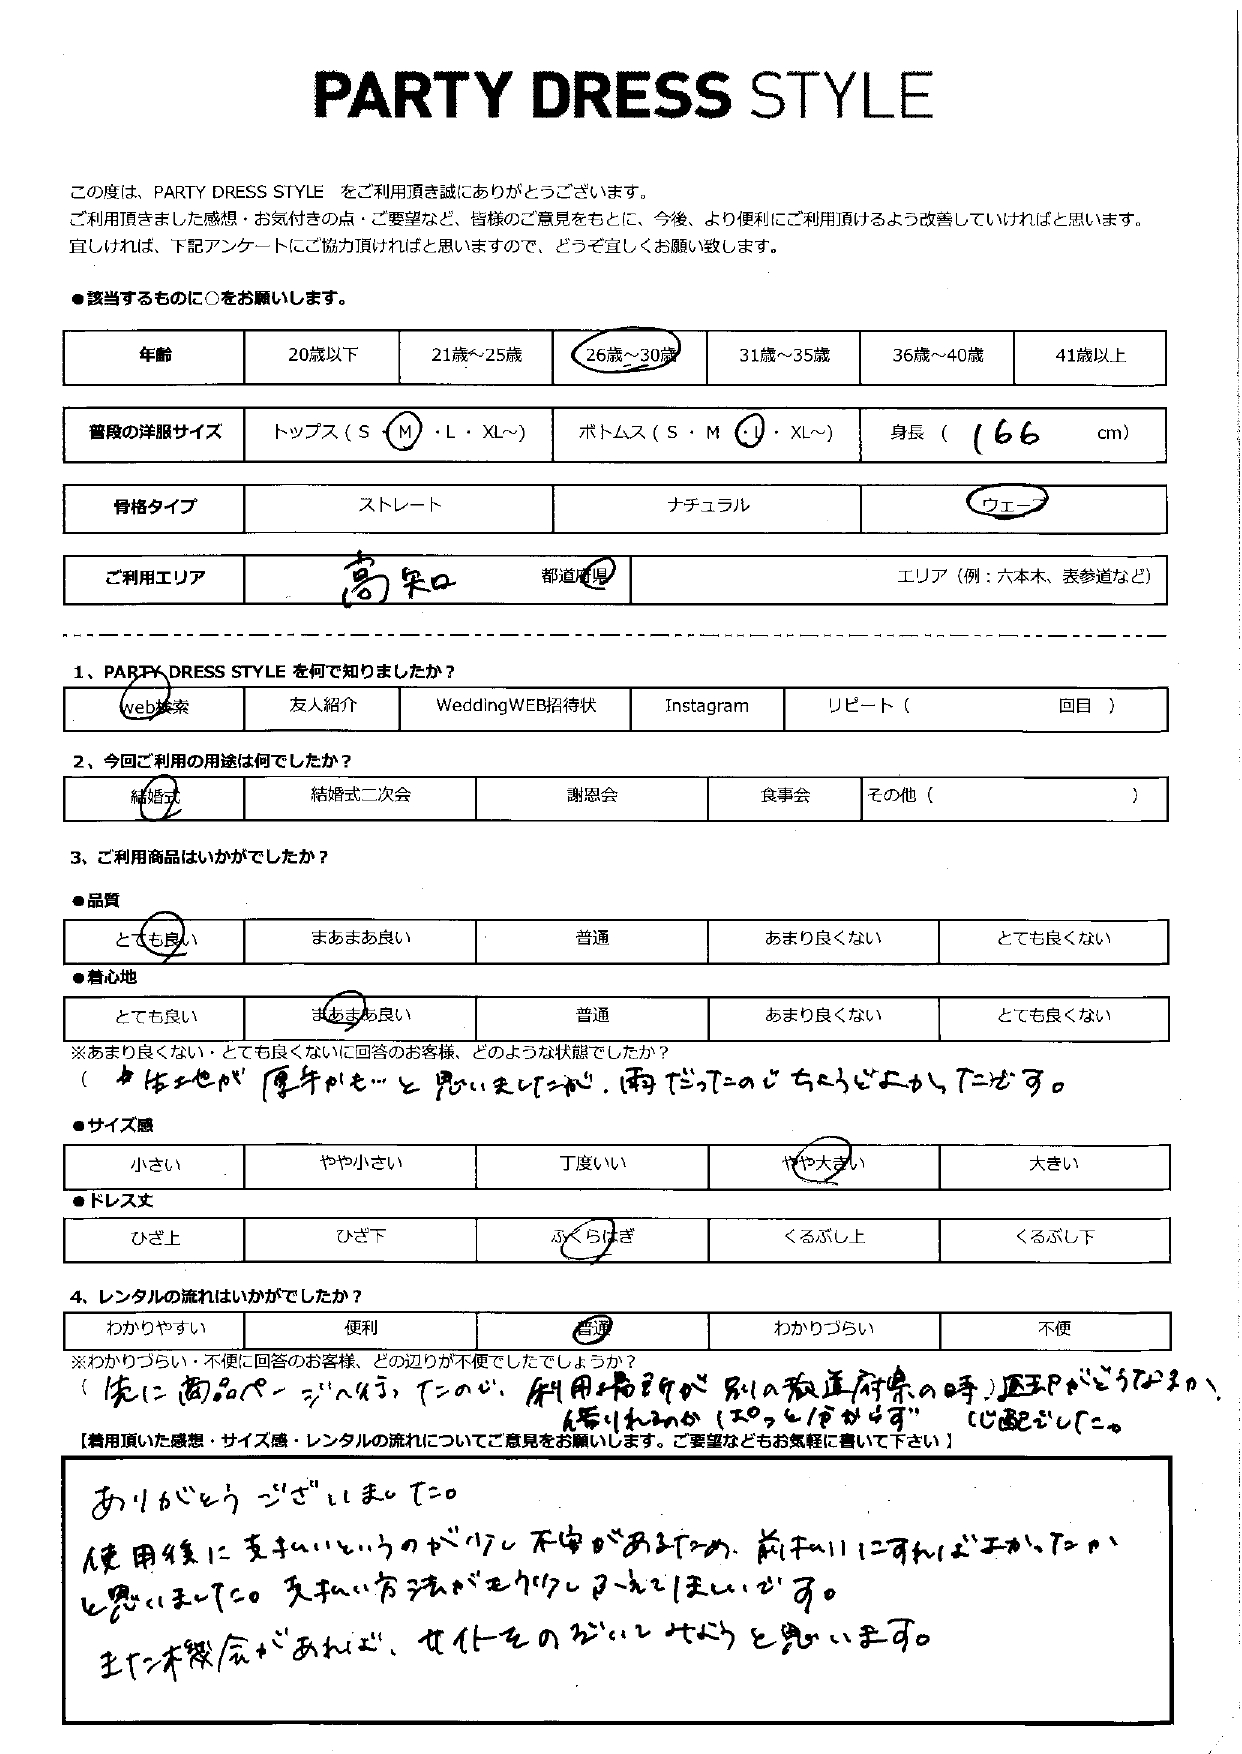 PARTY DRESS STYLE
この度は、PARTY DRESS STYLE をご利用頂き誠にありがとうございます。
ご利用頂きました感想・お気付きの点・ご要望など、皆様のご意見をもとに、今後、より便利にご利用頂けるよう改善していければと思います。
宜しければ、下記アンケートにご協力頂ければと思いますので、どうぞ宜しくお願い致します。
●該当するものに○をお願いします。
年齢 20歳以下 21歳～25歳 26歳～30歳 31歳～35歳 36歳～40歳 41歳以上
普段の洋服サイズ トップス ( S ・ M ・L ・ XL～) ボトムス ( S ・ M ・L ・ XL～) 身長 ( 166 cm)
骨格タイプ ストレート ナチュラル ウェーブ
ご利用エリア 高知 都道府県 エリア（例：六本木、表参道など）
1、PARTY DRESS STYLE を何で知りましたか？
web検索 友人紹介 WeddingWEB招待状 Instagram リピート（ 回目 ）
2、今回ご利用の用途は何でしたか？
結婚式 結婚式二次会 謝恩会 食事会 その他（ ）
3、ご利用商品はいかがでしたか？
●品質
とても良い まあまあ良い 普通 あまり良くない とても良くない
●着心地
とても良い まあまあ良い 普通 あまり良くない とても良くない
※あまり良くない・とても良くないに回答のお客様、どのような状態でしたか？
( 生地が厚手かも…と思いましたが、雨だったのでちょうどよかったです。
●サイズ感
小さい やや小さい 丁度いい やや大きい 大きい
●ドレス丈
ひざ上 ひざ下 ふくらはぎ くるぶし上 くるぶし下
4、レンタルの流れはいかがでしたか？
わかりやすい 便利 普通 わかりづらい 不便
※わかりづらい・不便に回答のお客様、どの辺りが不便でしたでしょうか？
( 先に商品ページへ行ったので、利用場所が別の都道府県の時、返却がどうなるか、
借りれるのかぱっと分からず 心配でした。
【着用頂いた感想・サイズ感・レンタルの流れについてご意見をお願いします。ご要望などもお気軽に書いて下さい 】
ありがとうございました。
使用後に支払いというのが少し不安があるため、前払いにすればよかったか
と思いました。支払い方法がもう少しふえてほしいです。
また機会があれば、サイトをのぞいてみようと思います。